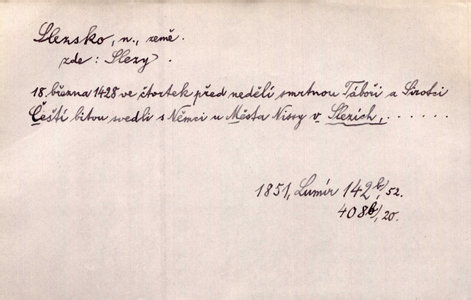 Slezsko, n., země.
zde: Slezy.
18. března 1428 ve čtvrtek před nedělí smrtnou Táboři a Sirotci
Čeští bitvu svedli s Němci u Města Nissy v Slezích, . . . . . .
1851, Lumír 142b/52.
408b/20.